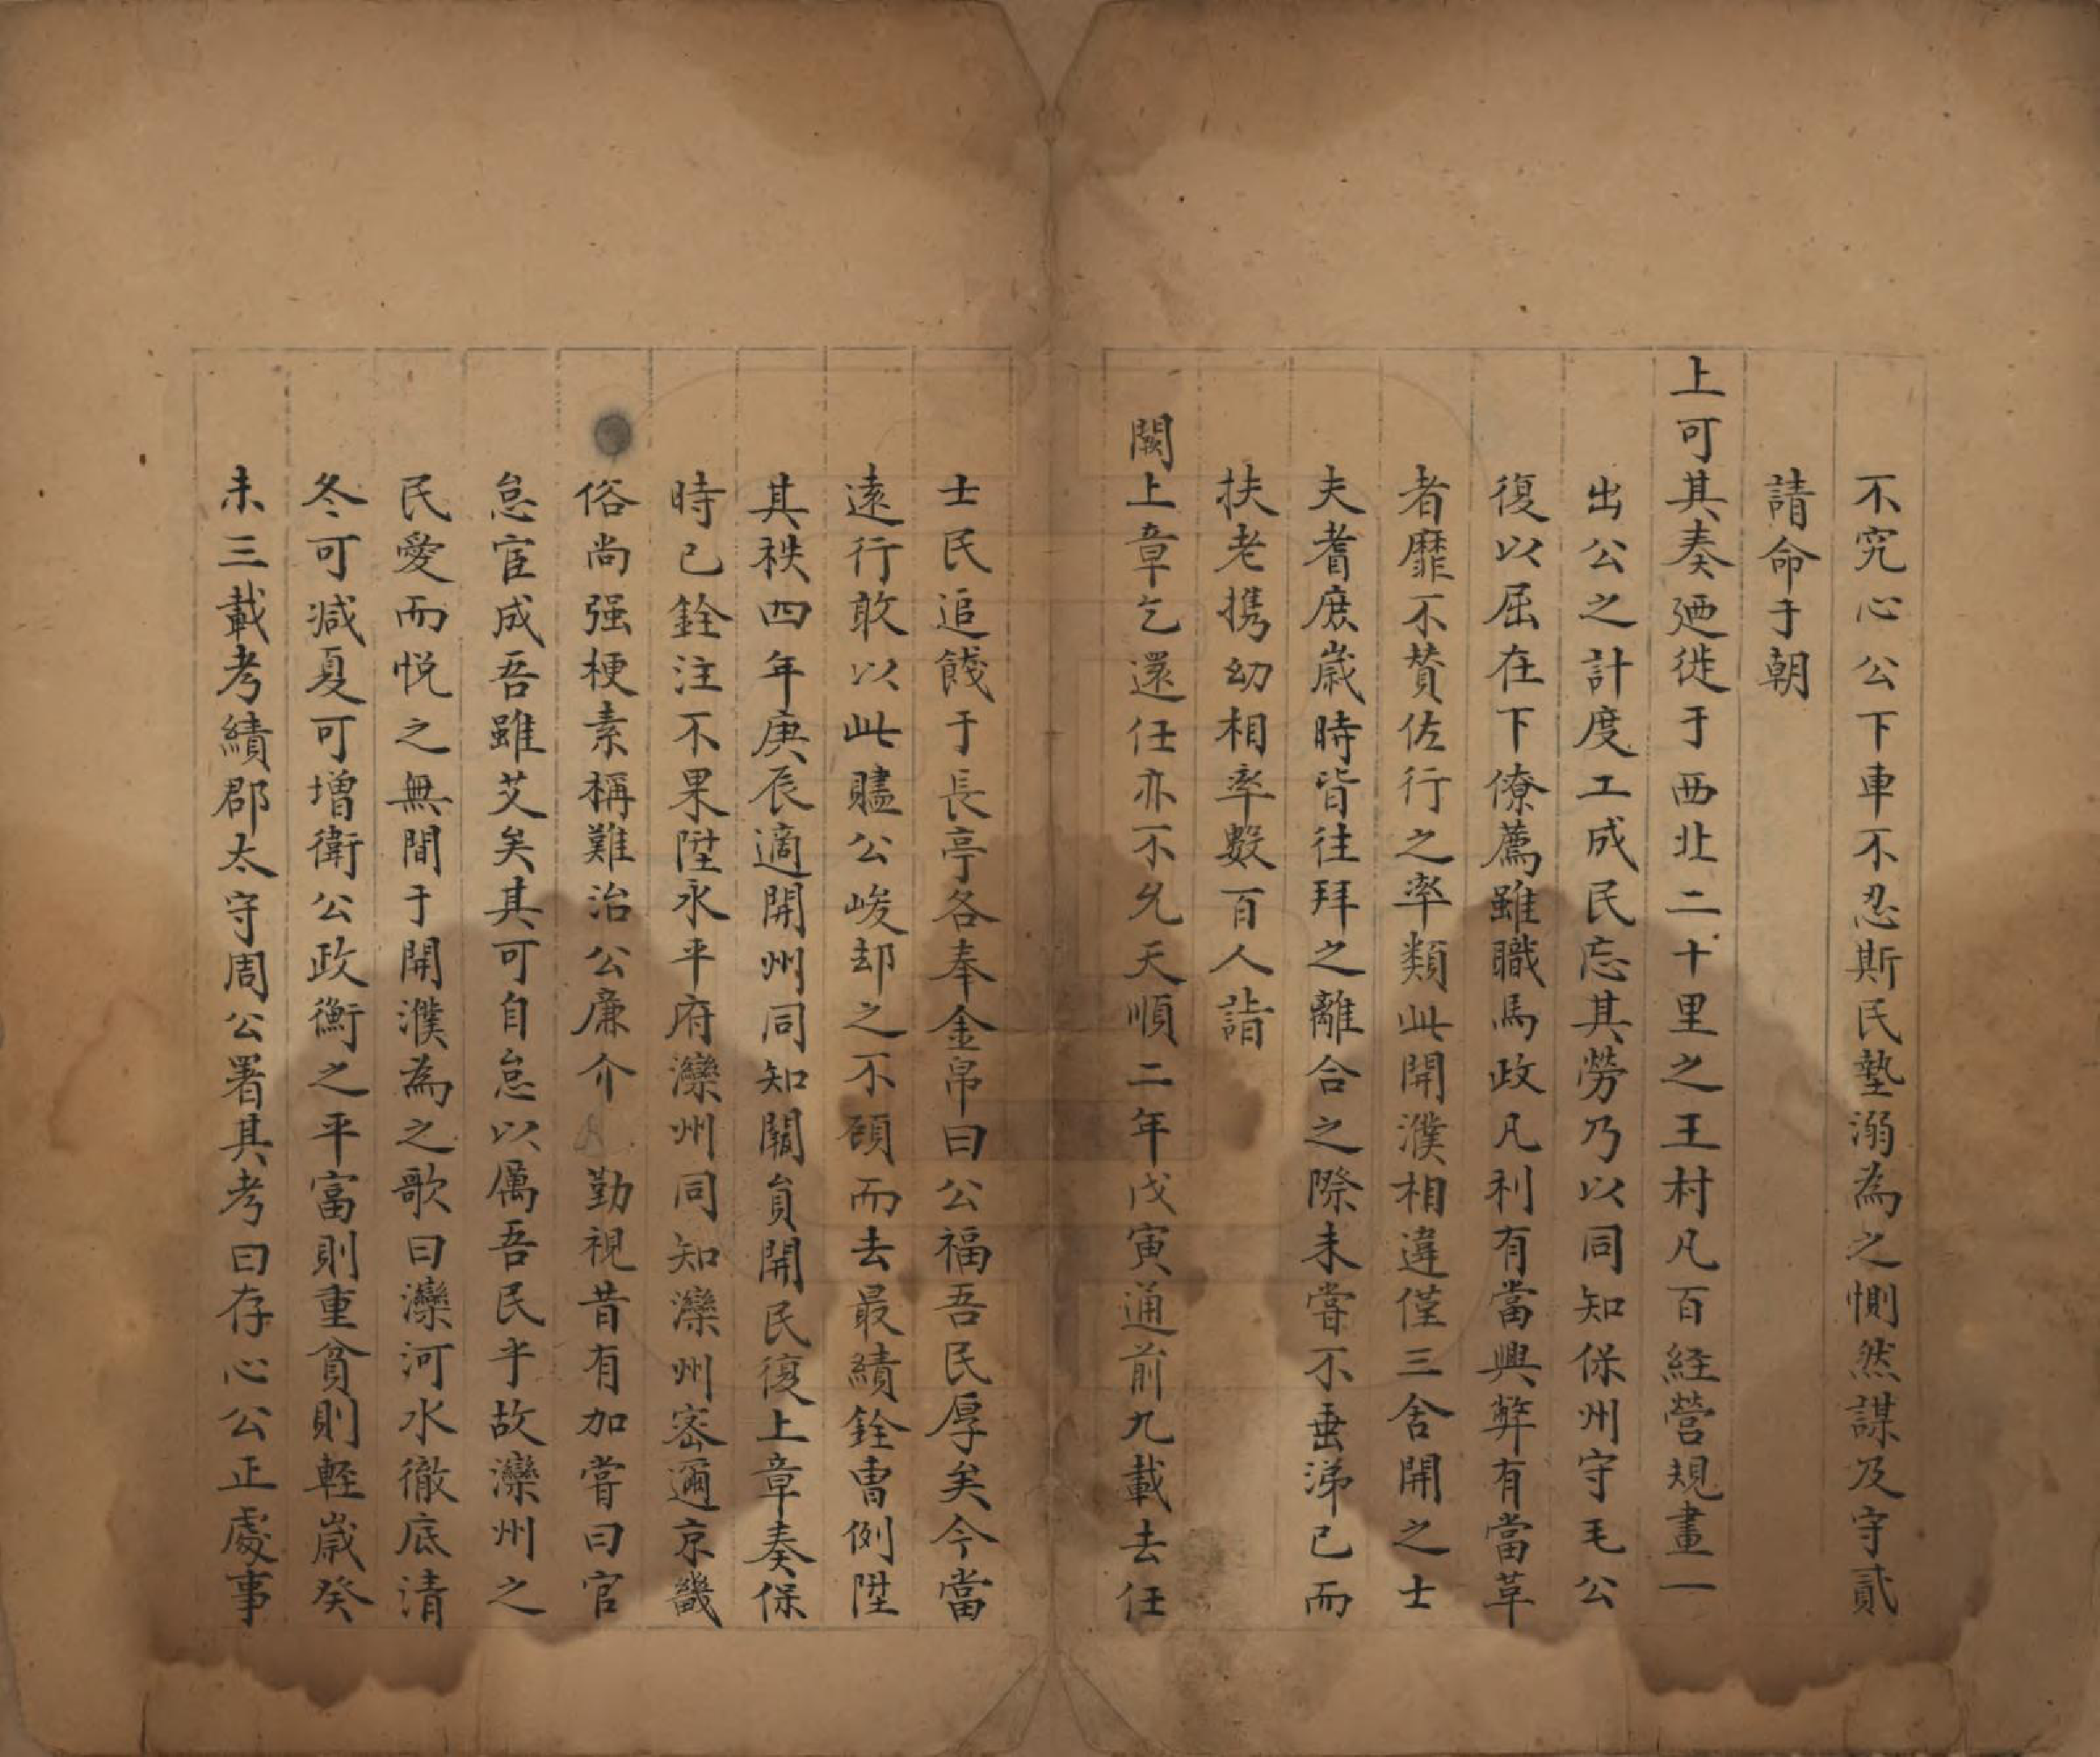 不究心公下車不忍斯民墊溺為之惻然謀及守貳
請命于朝
上可其奏廼徙于西北二十里之王村凡百経營規畫一
出公之計度工成民忘其勞乃以同知保州守毛公
復以屈在下僚薦雖職馬政凡利有當興弊有當革
者靡不賛佐行之率類此開濮相違僅三舍開之士
夫耆庶歲時皆往拜之離合之際未嘗不垂涕已而
扶老携幼相率數百人詣
闕上章乞還任亦不允天順二年戊寅通前九載去任
士民追餞于長亭各奉金帛曰公福吾民厚矣今當
遠行敢以此贐公峻却之不顧而去最績銓曹例陞
其秩四年庚辰適開州同知闕員開民復上章奏保
時已銓注不果陞永平府灤州同知灤州密邇京畿
俗尚强梗素稱難治公廉介勤視昔有加嘗曰官
怠宦成吾雖艾矣其可自怠以厲吾民乎故灤州之
民愛而悦之無間于開濮為之歌曰灤河水徹底清
冬可減夏可增衛公政衡之平富則重貧則輕歲癸
未三載考績郡太守周公署其考曰存心公正處事